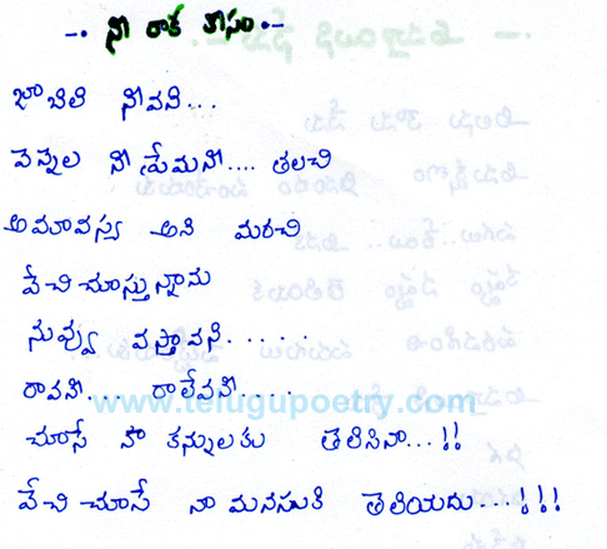 -. నీ రాక కోసం .-
జాబిలి నీవని...
వెన్నెల నీ ప్రేమని.... తలచి
అమావాస్య అని మరచి
వేచి చూస్తున్నాను
నువ్వు వస్తావని.....
రావని.... రాలేవని.....
www.telugupoetry.com
చూసే నా కన్నులకు తెలిసినా...!!
వేచి చూసే నా మనసుకి తెలియదు....!!!